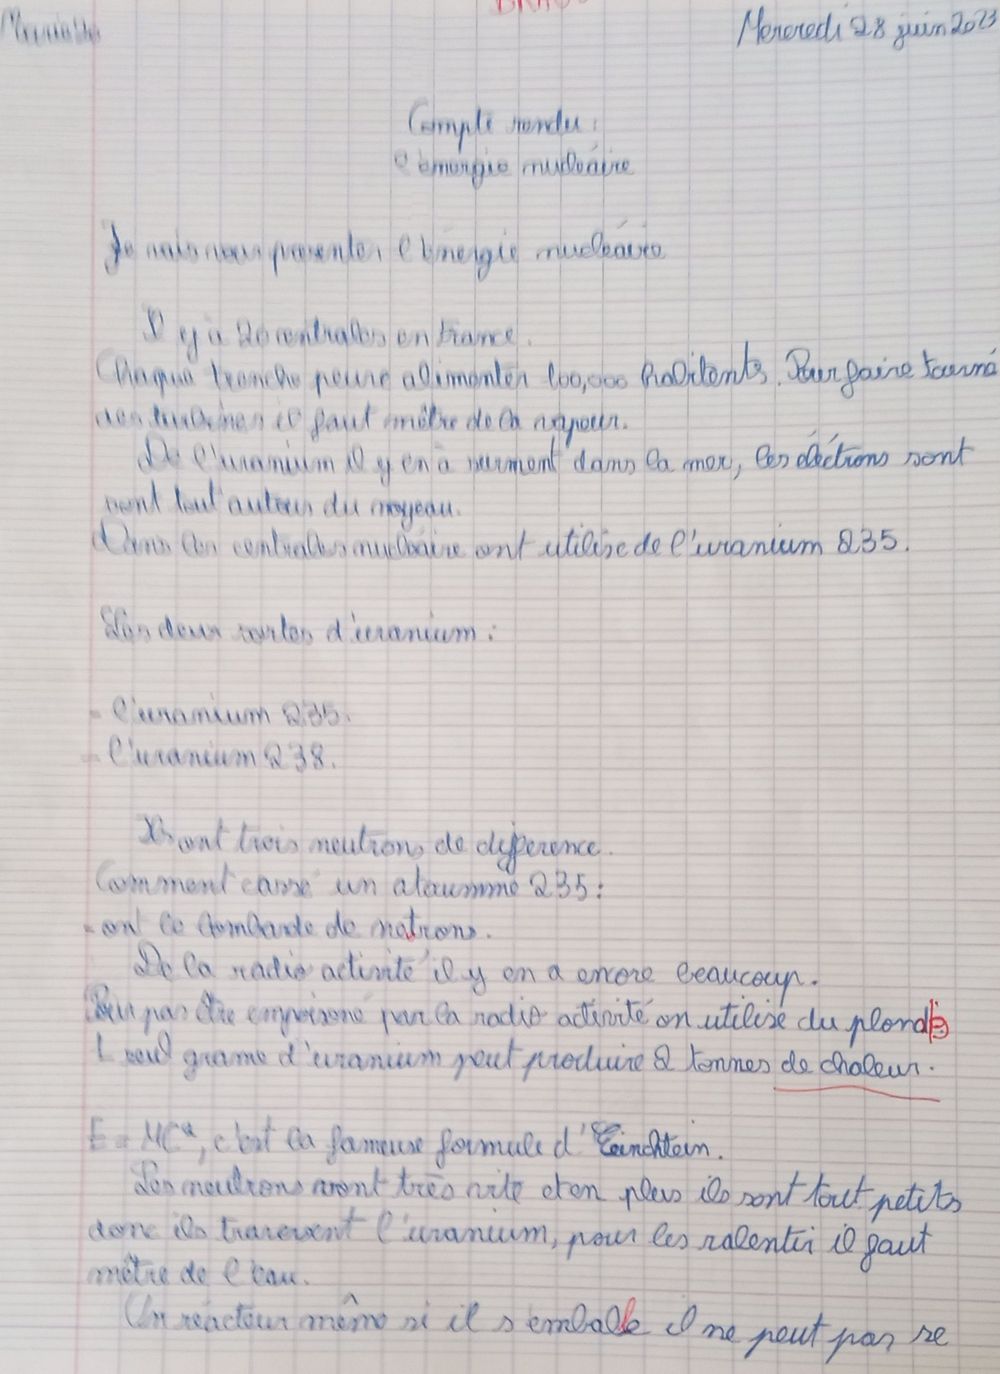 Mercredi 28 juin 2023
Compte rendu :
l'énergie nucléaire
Je vais vous presenter l'énergie nucléaire
Il y a 20 centrales en France.
Chaque tranche peuve alimenter 100,000 habitents. Pour faire tourné
des turbines il faut mêtre de la vapeur.
De l'uranium il y en a surment dans la mer, les éléctrons sont
vont tout autour du noyeau.
Dans les centrales nucléaire ont utilise de l'uranium 235.
Les deux sortes d'uranium :
- l'uranium 235.
- l'uranium 238.
Ils ont trois neutrons de difference.
Comment cassé un ataumme 235 :
- ont le bombarde de notrons.
De la radio activité il y en a encore beaucoup.
Pour pas être empoisoné par la radio activité on utilise du plomb
1 seul grame d'uranium peut produire 2 tonnes de chaleur.
E = MC², c'est la fameuse formule d'Einchtein.
Les neutrons vront très vite et en plus ils sont tout petits
donc ils traversent l'uranium, pour les ralentir il faut
mêtre de l'eau.
Un réacteur même si il s'emballe il ne peut pas se